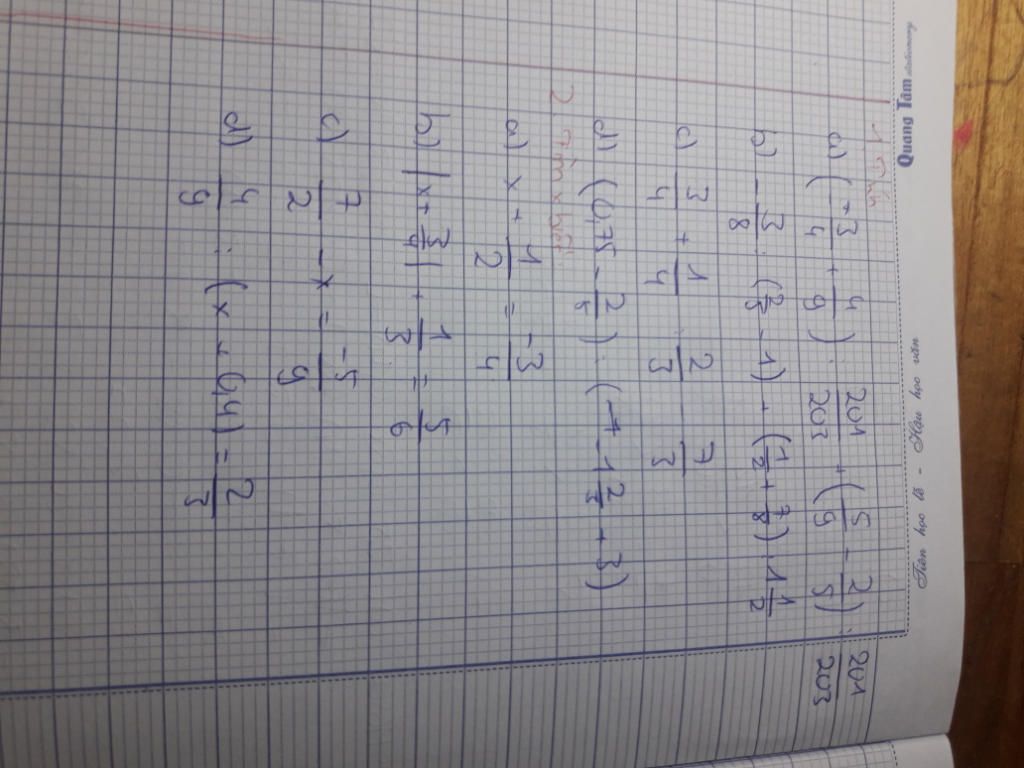 Quang Tám stationery
Tiên học lễ - Hậu học văn
1 Tính
a) (-3/4 + 4/9) . 201/203 + (5/9 - 2/5) . 201/203
b) -3/8 : (2/5 - 1) - (1/2 + 7/8) . 1 1/2
c) 3/4 + 1/4 . 2/3 7/3
d) (0,75 - 2/5) . (-1 - 1 2/5 + 3)
2 Tìm x
a) x + 1/2 = -3/4
b) |x + 3/4| - 1/3 = 5/6
c) 7/2 - x = -5/9
d) 4/9 : (x - 0,4) = 2/3